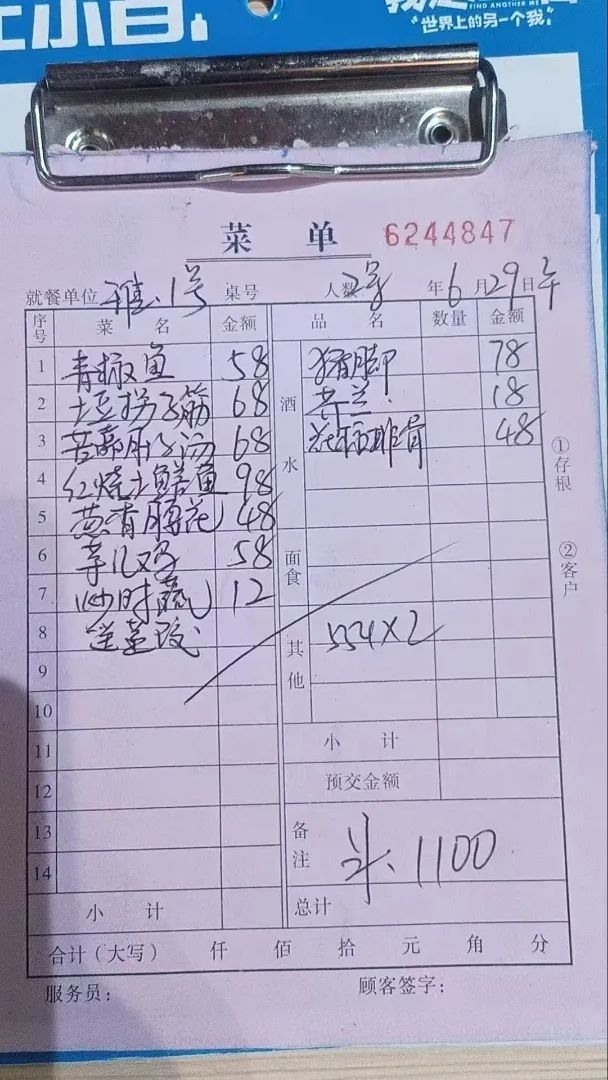 FIND ANOTHER ME
世界上的另一个我
菜 单 6244847
就餐单位 雅.1号 桌号 人数 2号 年 6 月 29 日 午
序号 菜 名 金额 品 名 数量 金额
1 青椒鱼 58 猪脚 78
2 土豆拐子筋 68 酒水 18
3 肚子汤 68 排骨 48
4 红烧土鳝鱼 98
5 葱香腰花 48
6 鸡 58 面食
7 炒时蔬 12
8 送 其他 554×2
9
10
11 小 计
12 预交金额
13 备注 斗、1100
14
小 计 总计
合计(大写) 仟 佰 拾 元 角 分
服务员: 顾客签字:
①存根
②客户